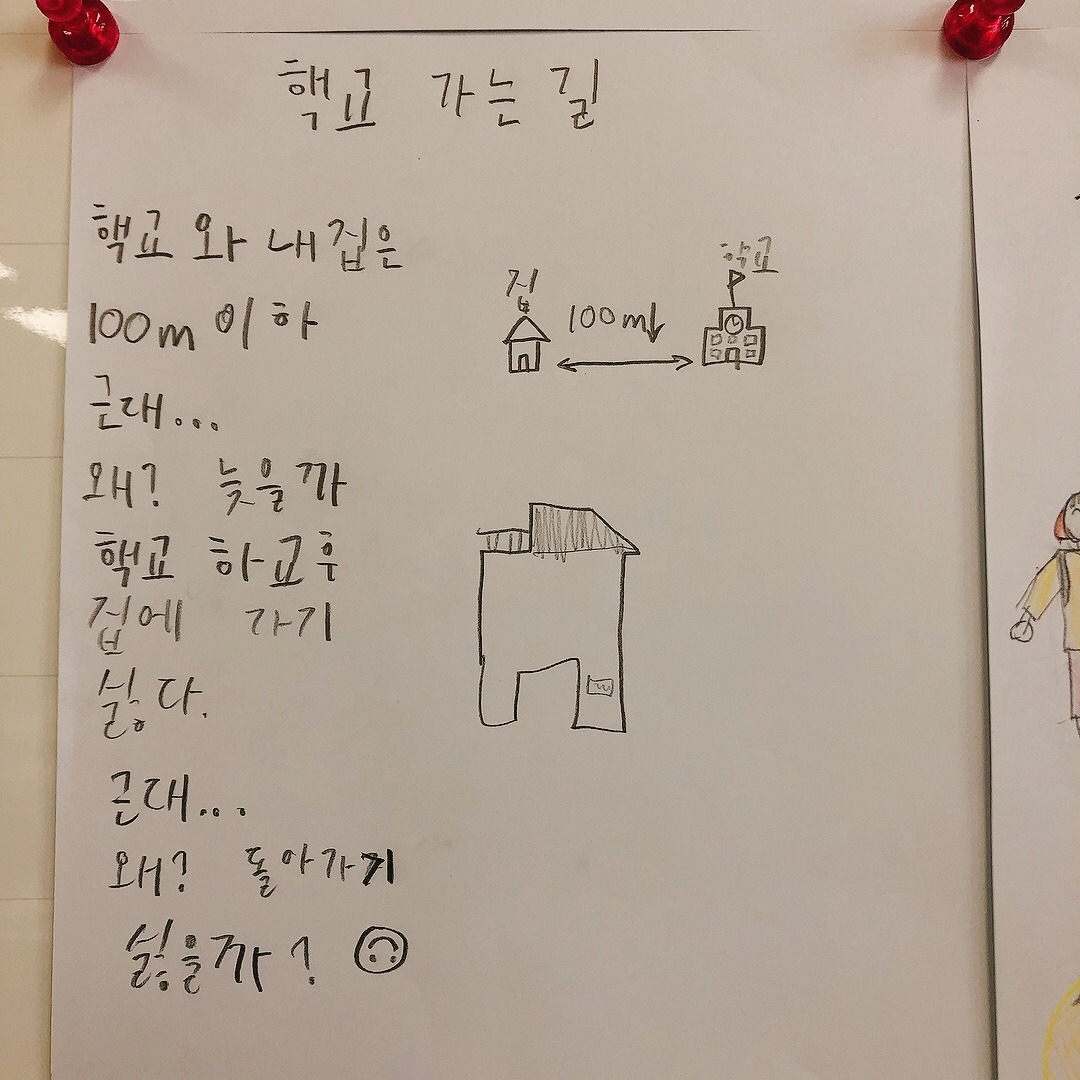 핵교 가는 길
핵교 와 내 집은
100m 이하
근대...
왜? 늦을까
핵교 하교 후
집에 가기
싫다.
근대...
왜? 돌아가기
싫을까?
집
100m↓
학교